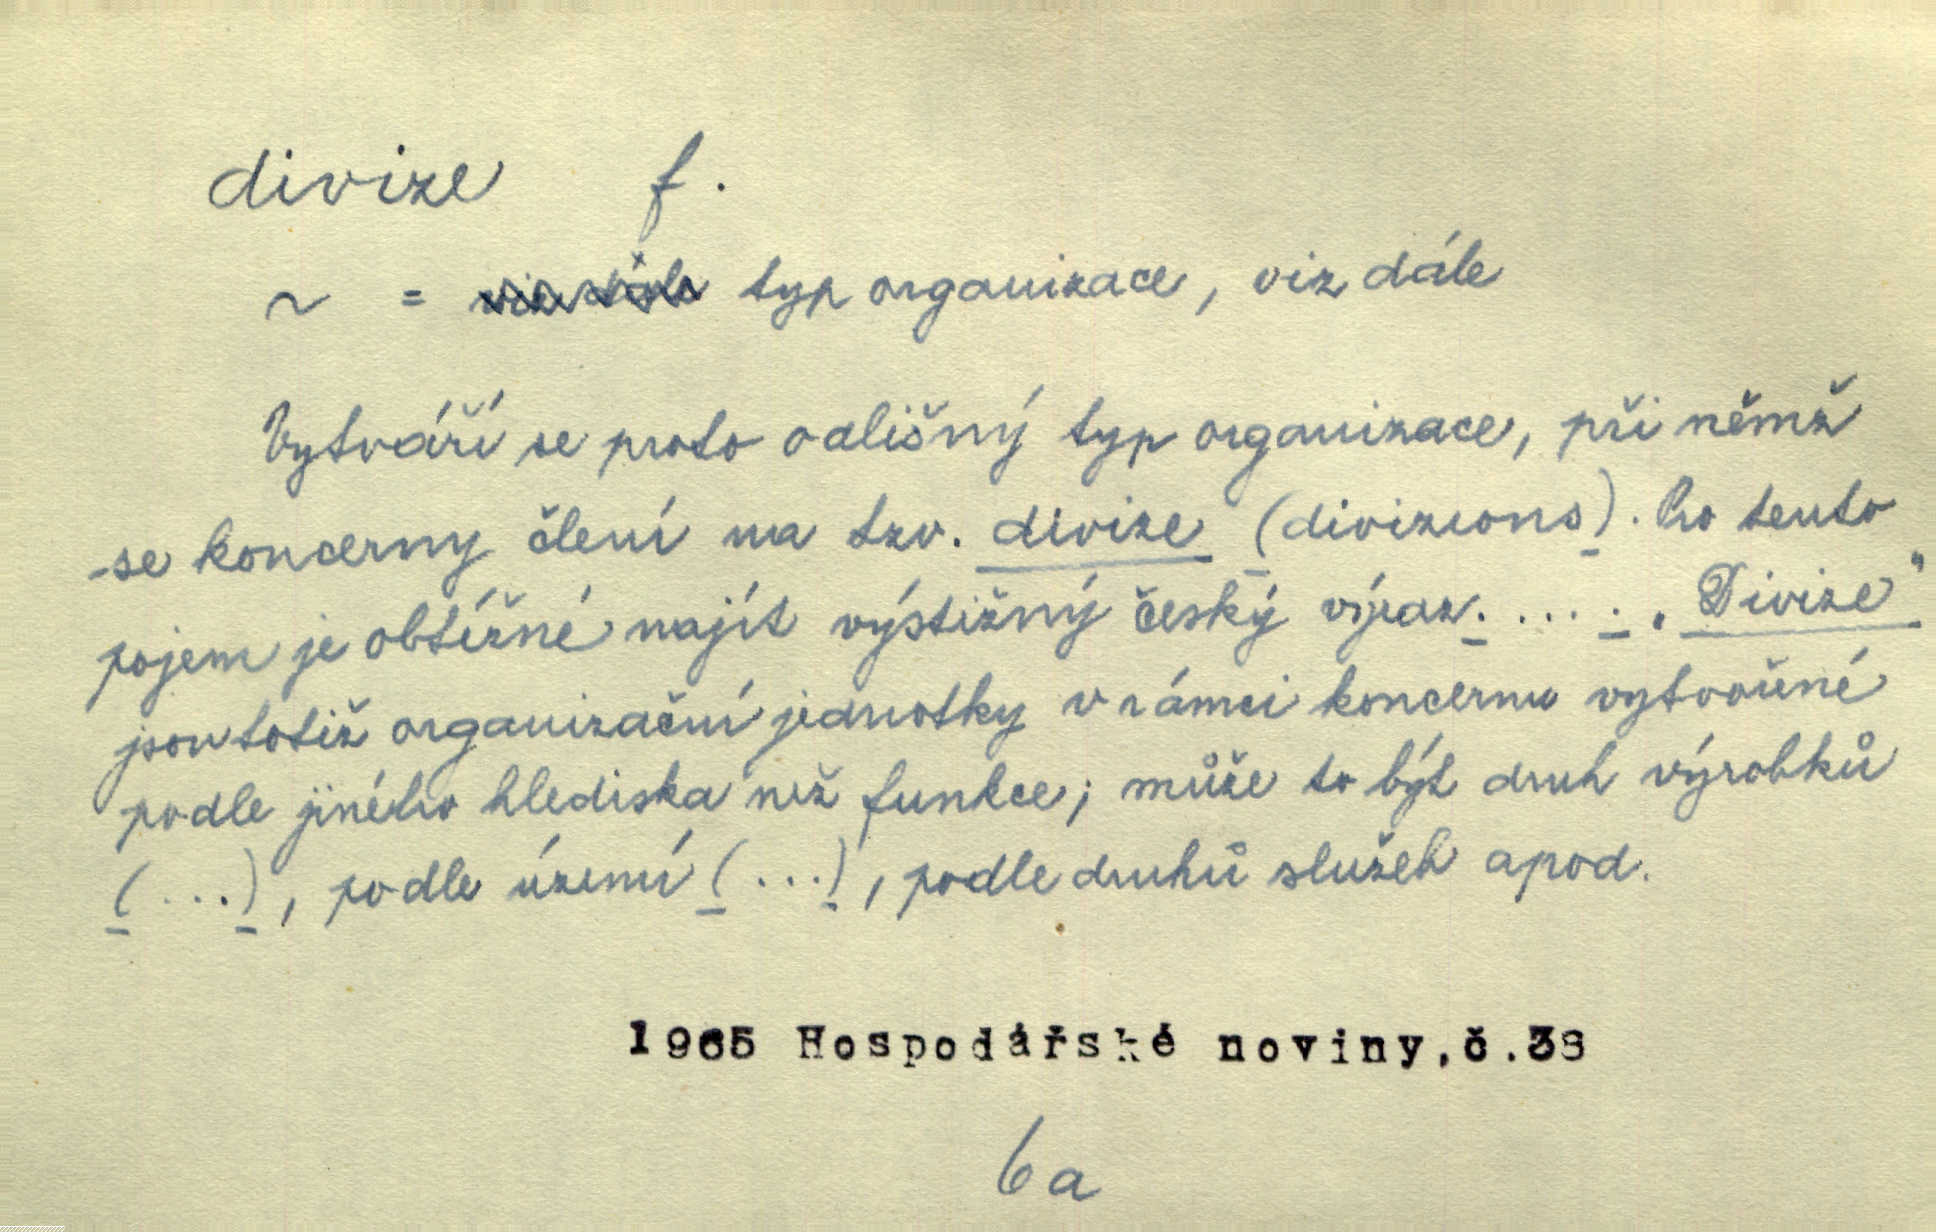 divize f.
~ = typ organizace, viz dále
Vytváří se proto odlišný typ organizace, při němž
se koncerny člení na tzv. divize (divizions). Pro tento
pojem je obtížné najít výstižný český výraz. .... „Divize"
jsou totiž organizační jednotky v rámci koncernu vytvořené
podle jiného hlediska než funkce; může to být druh výrobků
(...), podle území (...), podle druhů služeb apod.
1965 Hospodářské noviny, č.38
6a